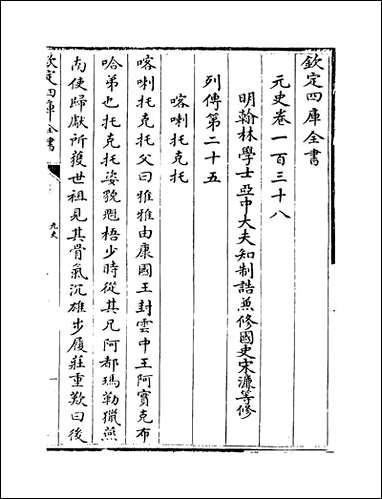 欽定四庫全書
元史卷一百三十八
明翰林學士亞中大夫知制誥兼修國史宋濂等修
列傳第二十五
喀喇托克托
喀喇托克托父曰雅雅由康國王封雲中王阿實克布
哈弟也托克托姿貌魁梧少時從其兄阿都瑪勒獵燕
南使歸獻所獲世祖見其骨氣沉雄步履莊重歎曰後
欽定四庫全書
元史
一